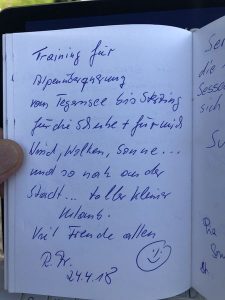 Training für
Alpenüberquerung
vom Tegernsee bis Sterzing
für die Stube + für mich
Wind, Wolken, Sonne...
und so nah an der
Stadt... toller kleiner
Urlaub.
Viel Freude allen
24.4.18
Ser
die
Sessel
sich